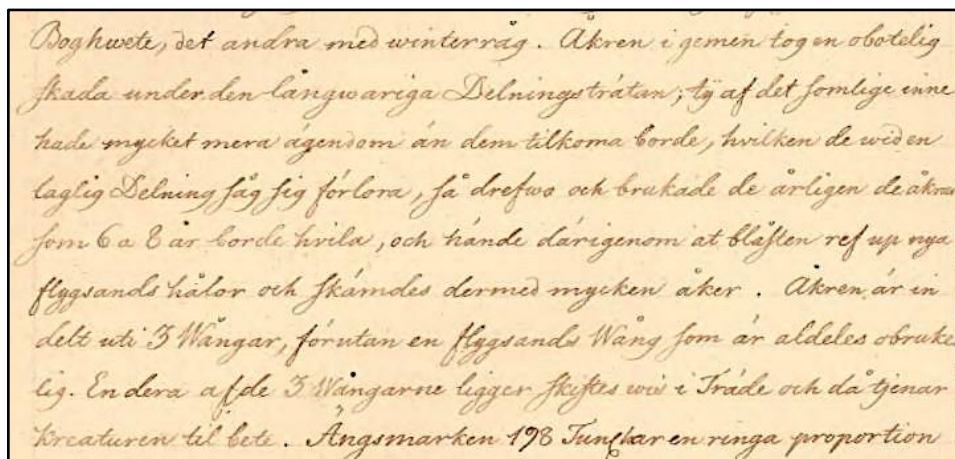 Boghwete, det andra med winterråg. Åkren i gemen tog en obotelig
skada under den långwariga Delningsträtan; ty af det somlige inne
hade mycket mera ägendom än dem tilkoma borde, hvilken de wid en
laglig Delning såg sig förlora, så drefwo och brukade de årligen de åkrar
som 6 a 8 år borde hvila, och hände därigenom at blåsten ref up nya
flygsands hålor och skämdes dermed mycken åker. Åkren är in
delt uti 3 Wångar, förutan en flygsands Wång som är aldeles obruke
lig. En dera af de 3 Wångarne ligger skiftes wis i Träde och då tjenar
Kreaturen til bete. Ängsmarken 198 en ringa proportion